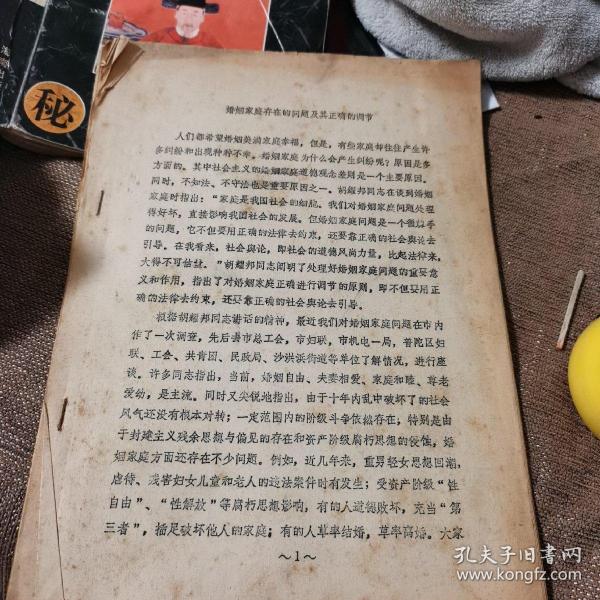 秘
婚姻家庭存在的问题及其正确的调节
人们都希望婚姻美满家庭幸福，但是，有些家庭却往往产生许
多纠纷和出现种种不幸。婚姻家庭为什么会产生纠纷呢？原因是多
方面的。其中社会主义的婚姻家庭道德观念差则是一个主要原因。
同时，不知法、不守法也是重要原因之一。胡耀邦同志在谈到婚姻
家庭时指出：“家庭是我国社会的细胞。我们对婚姻家庭问题处理
得好坏，直接影响我国社会的发展。但婚姻家庭问题是一个很棘手
的问题，它不但要用正确的法律去约束，还要靠正确的社会舆论去
引导。在我看来，社会舆论，即社会的道德风尚力量，比起法律来，
大得不可估兹。”胡耀邦同志阐明了处理好婚姻家庭问题的重要意
义和作用，指出了对婚姻家庭正确进行调节的原则，即不但要用正
确的法律去约束，还要靠正确的社会舆论去引导。
根据胡耀邦同志讲话的精神，最近我们对婚姻家庭问题在市内
作了一次调查，先后去市总工会，市妇联，市机电一局，普陀区妇
联、工会、共青团、民政局、沙洪浜街道等单位了解情况，进行座
谈。许多同志指出，当前，婚姻自由、夫妻相爱、家庭和睦、尊老
爱幼，是主流。同时又尖锐地指出，由于十年内乱中破坏了的社会
风气还没有根本对转；一定范围内的阶级斗争依然存在，特别是由
于封建主义残余思想与偏见的存在和资产阶级腐朽思想的侵蚀，婚
姻家庭方面还存在不少问题。例如，近几年来，重男轻女思想回潮，
虐待、残害妇女儿童和老人的违法案件时有发生；受资产阶级“性
自由”、“性解放”等腐朽思想影响，有的人道德败坏，充当“第
三者”，插足破坏他人的家庭；有的人草率结婚，草率离婚。大家
～1～
孔夫子旧书网
www.kongfz.com